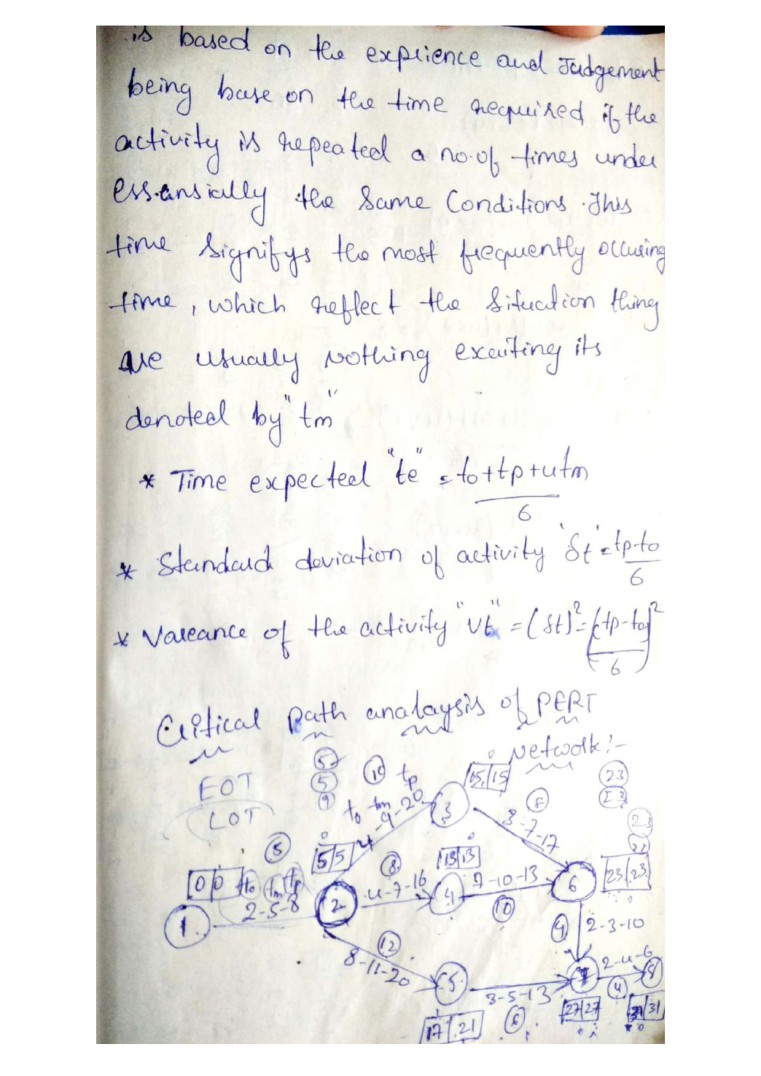 is based on the exprience and Judgement
being base on the time required if the
activity is repeated a no.of times under
ess.ansially the Same Conditions. This
time Signifys the most frequently occusing
time, which reflect the Situation thing
are usually nothing exaiting its
denoted by "tm"
* Time expected "te" = to+tp+4tm
6
* Standard deviation of activity "St" = tp-to
6
* Vareance of the activity "Vt" = (St)² = (tp-to)²
6
Critical Path analaysis of PERT
Network:-
EOT
LOT
5
5
9
10
to tm tp
4-9-20
15 15
3
8
3-7-17
23
23
5
5 5
8
13 13
0 0
to tm tp
2-5-8
1
2
4-7-16
4
7-10-13
10
6
23 23
12
8-11-20
5
17 21
3-5-13
6
9
2-3-10
7
27 27
2-4-6
4
8
31 31